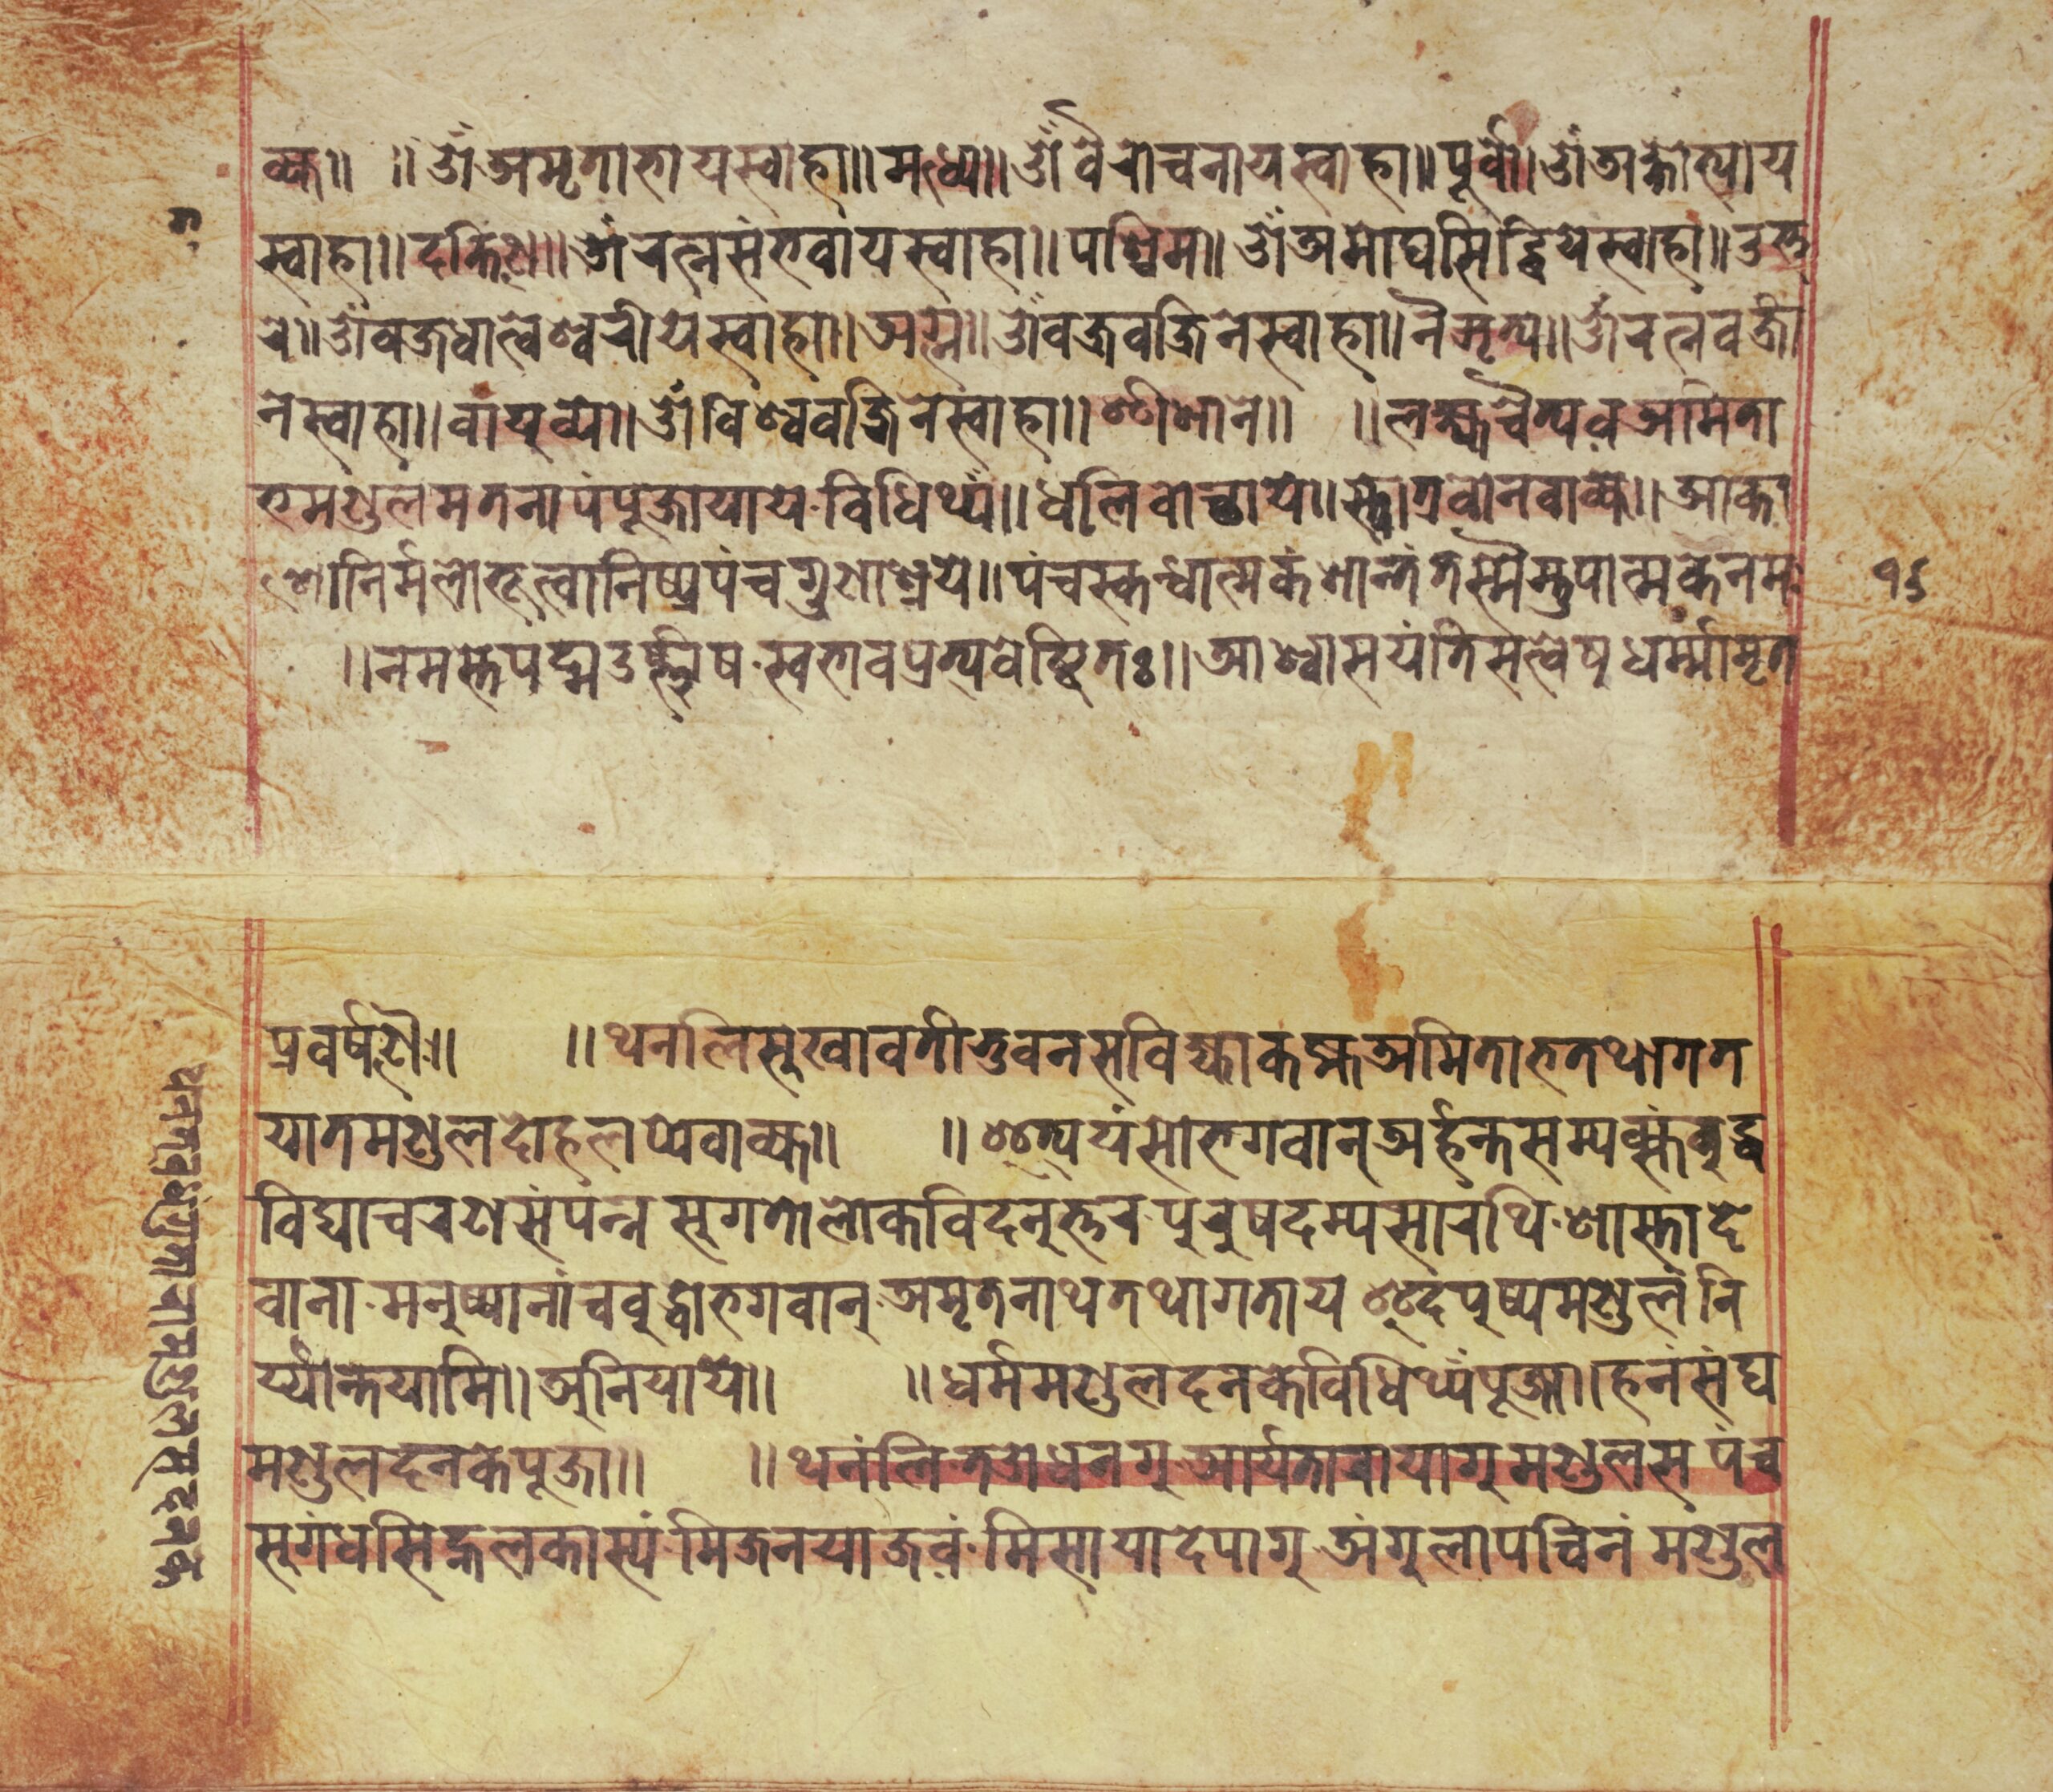 वाक्य॥ ॥ ॐ अमृताभायस्वाहा॥ मध्य॥ ॐ वैरोचनायस्वाहा॥ पूर्वे॥ ॐ अक्षोभ्याय
स्वाहा॥ दक्षिण॥ ॐ रत्नसंभवायस्वाहा॥ पश्चिम॥ ॐ अमोघसिद्धियेस्वाहा॥ उत्त
रे॥ ॐ वज्रधात्वेश्वरीयेस्वाहा॥ अग्ने॥ ॐ वज्रवज्रिनेस्वाहा॥ नैऋत्य॥ ॐ रत्नवज्री
नेस्वाहा॥ वायुव्ये॥ ॐ विश्ववज्रिनेस्वाहा॥ ईशाने॥ ॥ चैत्यव अमिता
भमण्डलमतनापंपूजायाये विधिथ्यं॥ धलि वोछाये॥ स्तोत्रवोनवाक्य॥ आका
शोनिर्मलोभूत्वानिष्प्रपंचगुणाश्रये॥ पंचस्कन्धात्मकंशान्तंतस्मैस्तुपात्मकेनमः
॥ नमस्तेपद्मउर्ष्णीष स्वभावप्रत्यवेष्टितः॥ आश्वासयंतिसत्वेषुधर्म्मामृत
१५
प्रवर्षणैः॥ ॥ थनलिसुखावतीभुवनसविज्याकह्म अमिताभतथागत
यातमण्डलदोहलप्येवाक्य॥ ॥ इत्ययंसोभगवान् अर्हन्तसम्यक्संबुद्ध
विद्याचरणसंपन्न सुगतोलोकविदनुत्तर पुरुषदम्यसारथि शास्तादे
वाना मनुष्यानांचबुद्धोभगवान् अमृतनाथतथागताय इदंपुष्पमण्डलंनि
र्य्यान्तयामि॥ थुनियाये॥ ॥ धर्ममण्डलदनकेविधिथ्यंपूजा॥ हनंसंघ
मण्डलदनकेपूजा॥ ॥ थनंलि तओधनगु आर्यतारायागु मण्डलस पंच
सुगंधसिह्मलकास्यं मिजनयाजवं मिसायादेपागु अंगुलापचिनं मण्डल